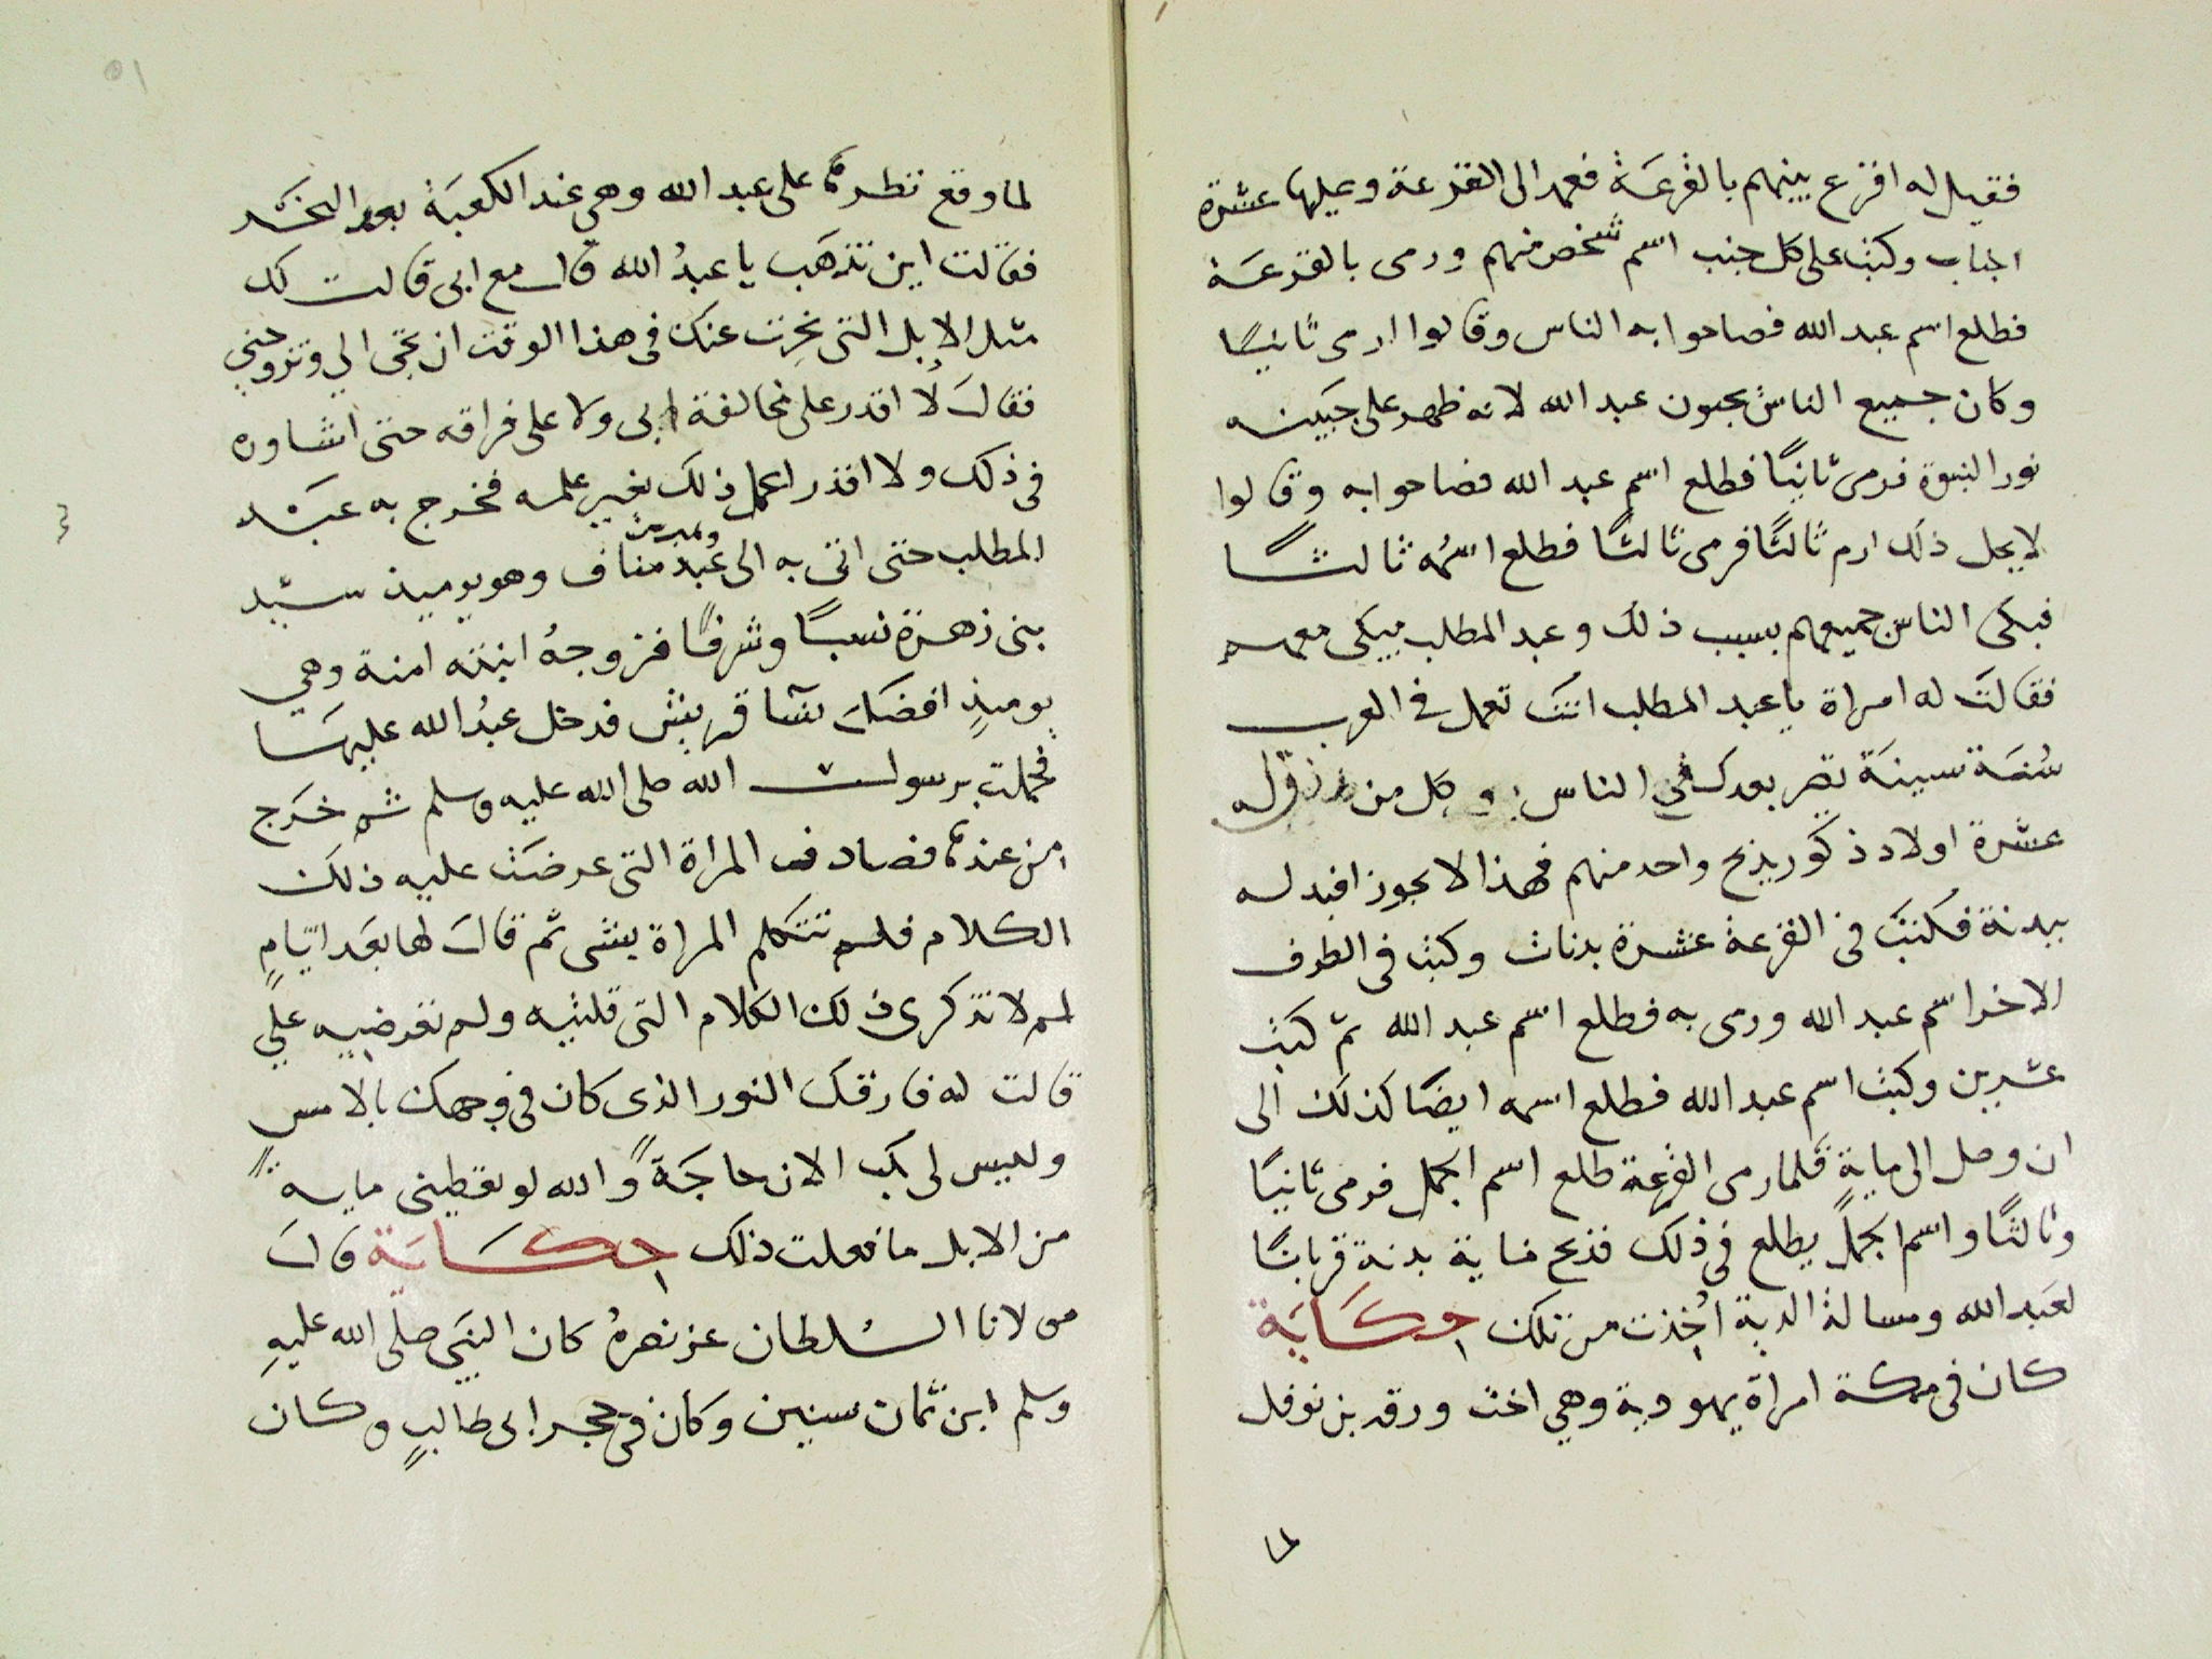 فقيل له اقرع بينهم بالقرعة فعمد الى القرعة وعليها عشرة
اجناب وكتب على كل جنب اسم شخص منهم ورمى بالقرعة
فطلع اسم عبد الله فصاحوا به الناس وقالوا ارمى ثانيًا
وكان جميع الناس يحبون عبد الله لانه ظهر على جبينه
نور النبوة فرمى ثانيًا فطلع اسم عبد الله فصاحوا به وقالوا
لا يحل ذلك ارم ثالثًا فرمى ثالثًا فطلع اسمُه ثالثًا
فبكى الناس جميعهم بسبب ذلك وعبد المطلب يبكى معهم
فقالت له امراة يا عبد المطلب انت تعمل في العرب
سُنة سينة تصير بعدك في الناس وكل من رزق له
عشرة اولاد ذكور يذبح واحد منهم فهذا لا يجوز افيد له
ببدنة فكتب في القرعة عشرة بدنات وكتب في الطرف
الاخر اسم عبد الله ورمى به فطلع اسم عبد الله ثم كتب
عشرين وكتب اسم عبد الله فطلع اسمه ايضًا كذلك الى
ان وصل الى مايةٍ فلما رمى القرعة طلع اسم الجمل فرمى ثانيًا
وثالثًا واسم الجمل يطلع في ذلك فذبح ماية بدنة قربانًا
لعبد الله ومسالة الدية اُخذت من تلك حكاية
كان في مكة امراة يهودية وهي اخت ورقه بن نوفل
لما
لما وقع نظرها على عبد الله وهي عند الكعبة بعد النحر
فقالت اين تذهب يا عبدُ الله قال مع ابى قالت لك
مثل الابل التى نحِرت عنك في هذا الوقت ان تجى الي وتزوجني
فقال لا اقدر على مخالفة ابى ولا على فراقه حتى اشاوره
في ذلك ولا اقدر اعمل ذلك بغير علمه فخرج به عبد
المطلب حتى اتى به الى عبد مناف وهو يوميذ سيد
بنى زهرة نسبًا وشرفًا فزوجهُ ابنته امنة وهي
يوميذٍ افضل نسا قريش فدخل عبدُ الله عليها
فحملت برسول الله صلى الله عليه وسلم ثم خرج
من عندها فصادف المراة التى عرضت عليه ذلك
الكلام فلم تتكلم المراة بشى ثم قال لها بعد ايّامٍ
لم لا تذكرى ذلك الكلام التى قلتيه ولم تعرضيه علي
قالت له فارقك النور الذى كان في وجهك بالامس
وليس لى بك الان حاجةً والله لو تعطينى ماية
من الابل ما فعلت ذلك حكاية قال
مولانا السُلطان عز نصرهُ كان النبي صلى الله عليهِ
وسلم ابن ثمان سنين وكان في حجر ابى طالبٍ وكان